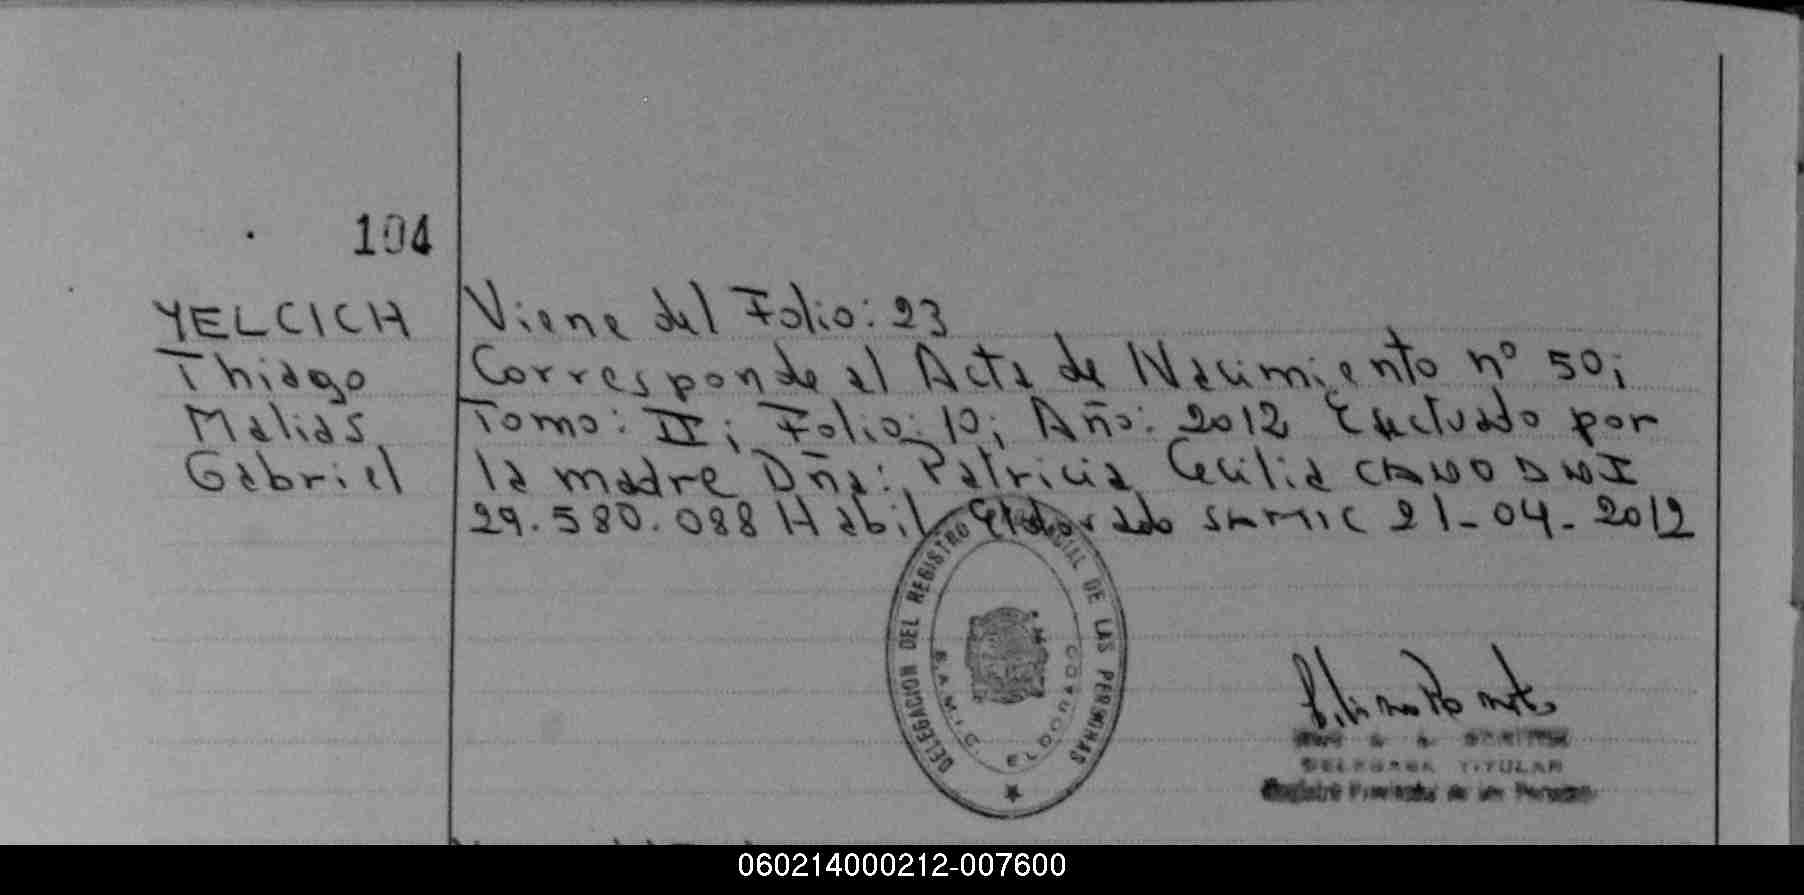 104
YELCICH
Thiago
Matias
Gabriel
Viene del Folio: 23
Corresponde al Acta de Nacimiento nº 50;
Tomo: II; Folio: 10; Año: 2012 Efectuado por
la madre Dña: Patricia Cecilia CANO DNI
29.580.088 Habil. Eldorado SAMIC 21-04-2012
DELEGACION DEL REGISTRO DE LAS PERSONAS
S.A.M.I.C. ELDORADO
DELEGADA TITULAR
Registro Provincial de las Personas
060214000212-007600